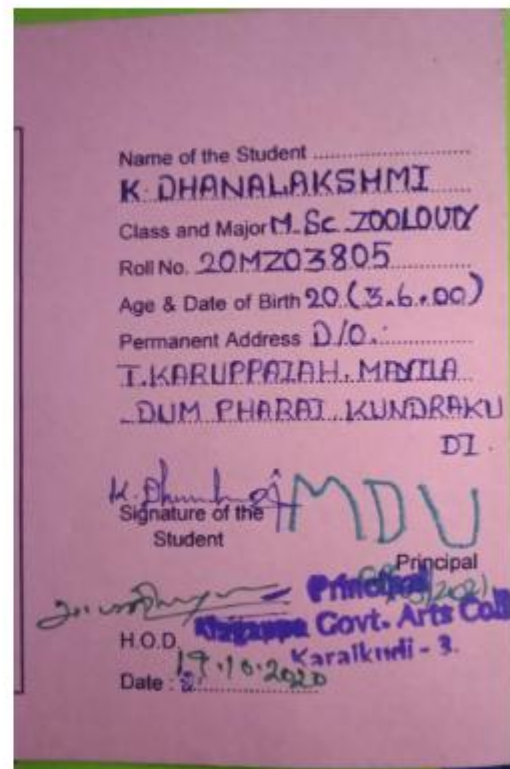 Name of the Student ..............................
K. DHANALAKSHMI
Class and Major M.Sc ZOOLOUTY
Roll No. 20MZ03805
Age & Date of Birth 20 (3.6.00)
Permanent Address D/O.
T.KARUPPAIAH.
DUM KUNDRAKU
DI.
Signature of the
Student
MDU
Principal
Principal
Govt. Arts Coll
Karaikudi - 3.
H.O.D.
Date : 19.10.2020